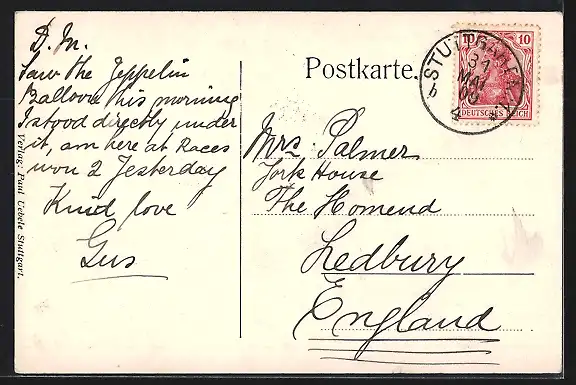 D. M.
Saw the Zeppelin
Balloon this morning
I stood directly under
it, am here at Races
won 2 Yesterday
Kind love
Gus
Verlag: Paul Uebele Stuttgart.
Postkarte.
10 10
DEUTSCHES REICH
STUTTGART
31
MAI
b
4
Mrs. Palmer
York House
The Homend
Ledbury
England